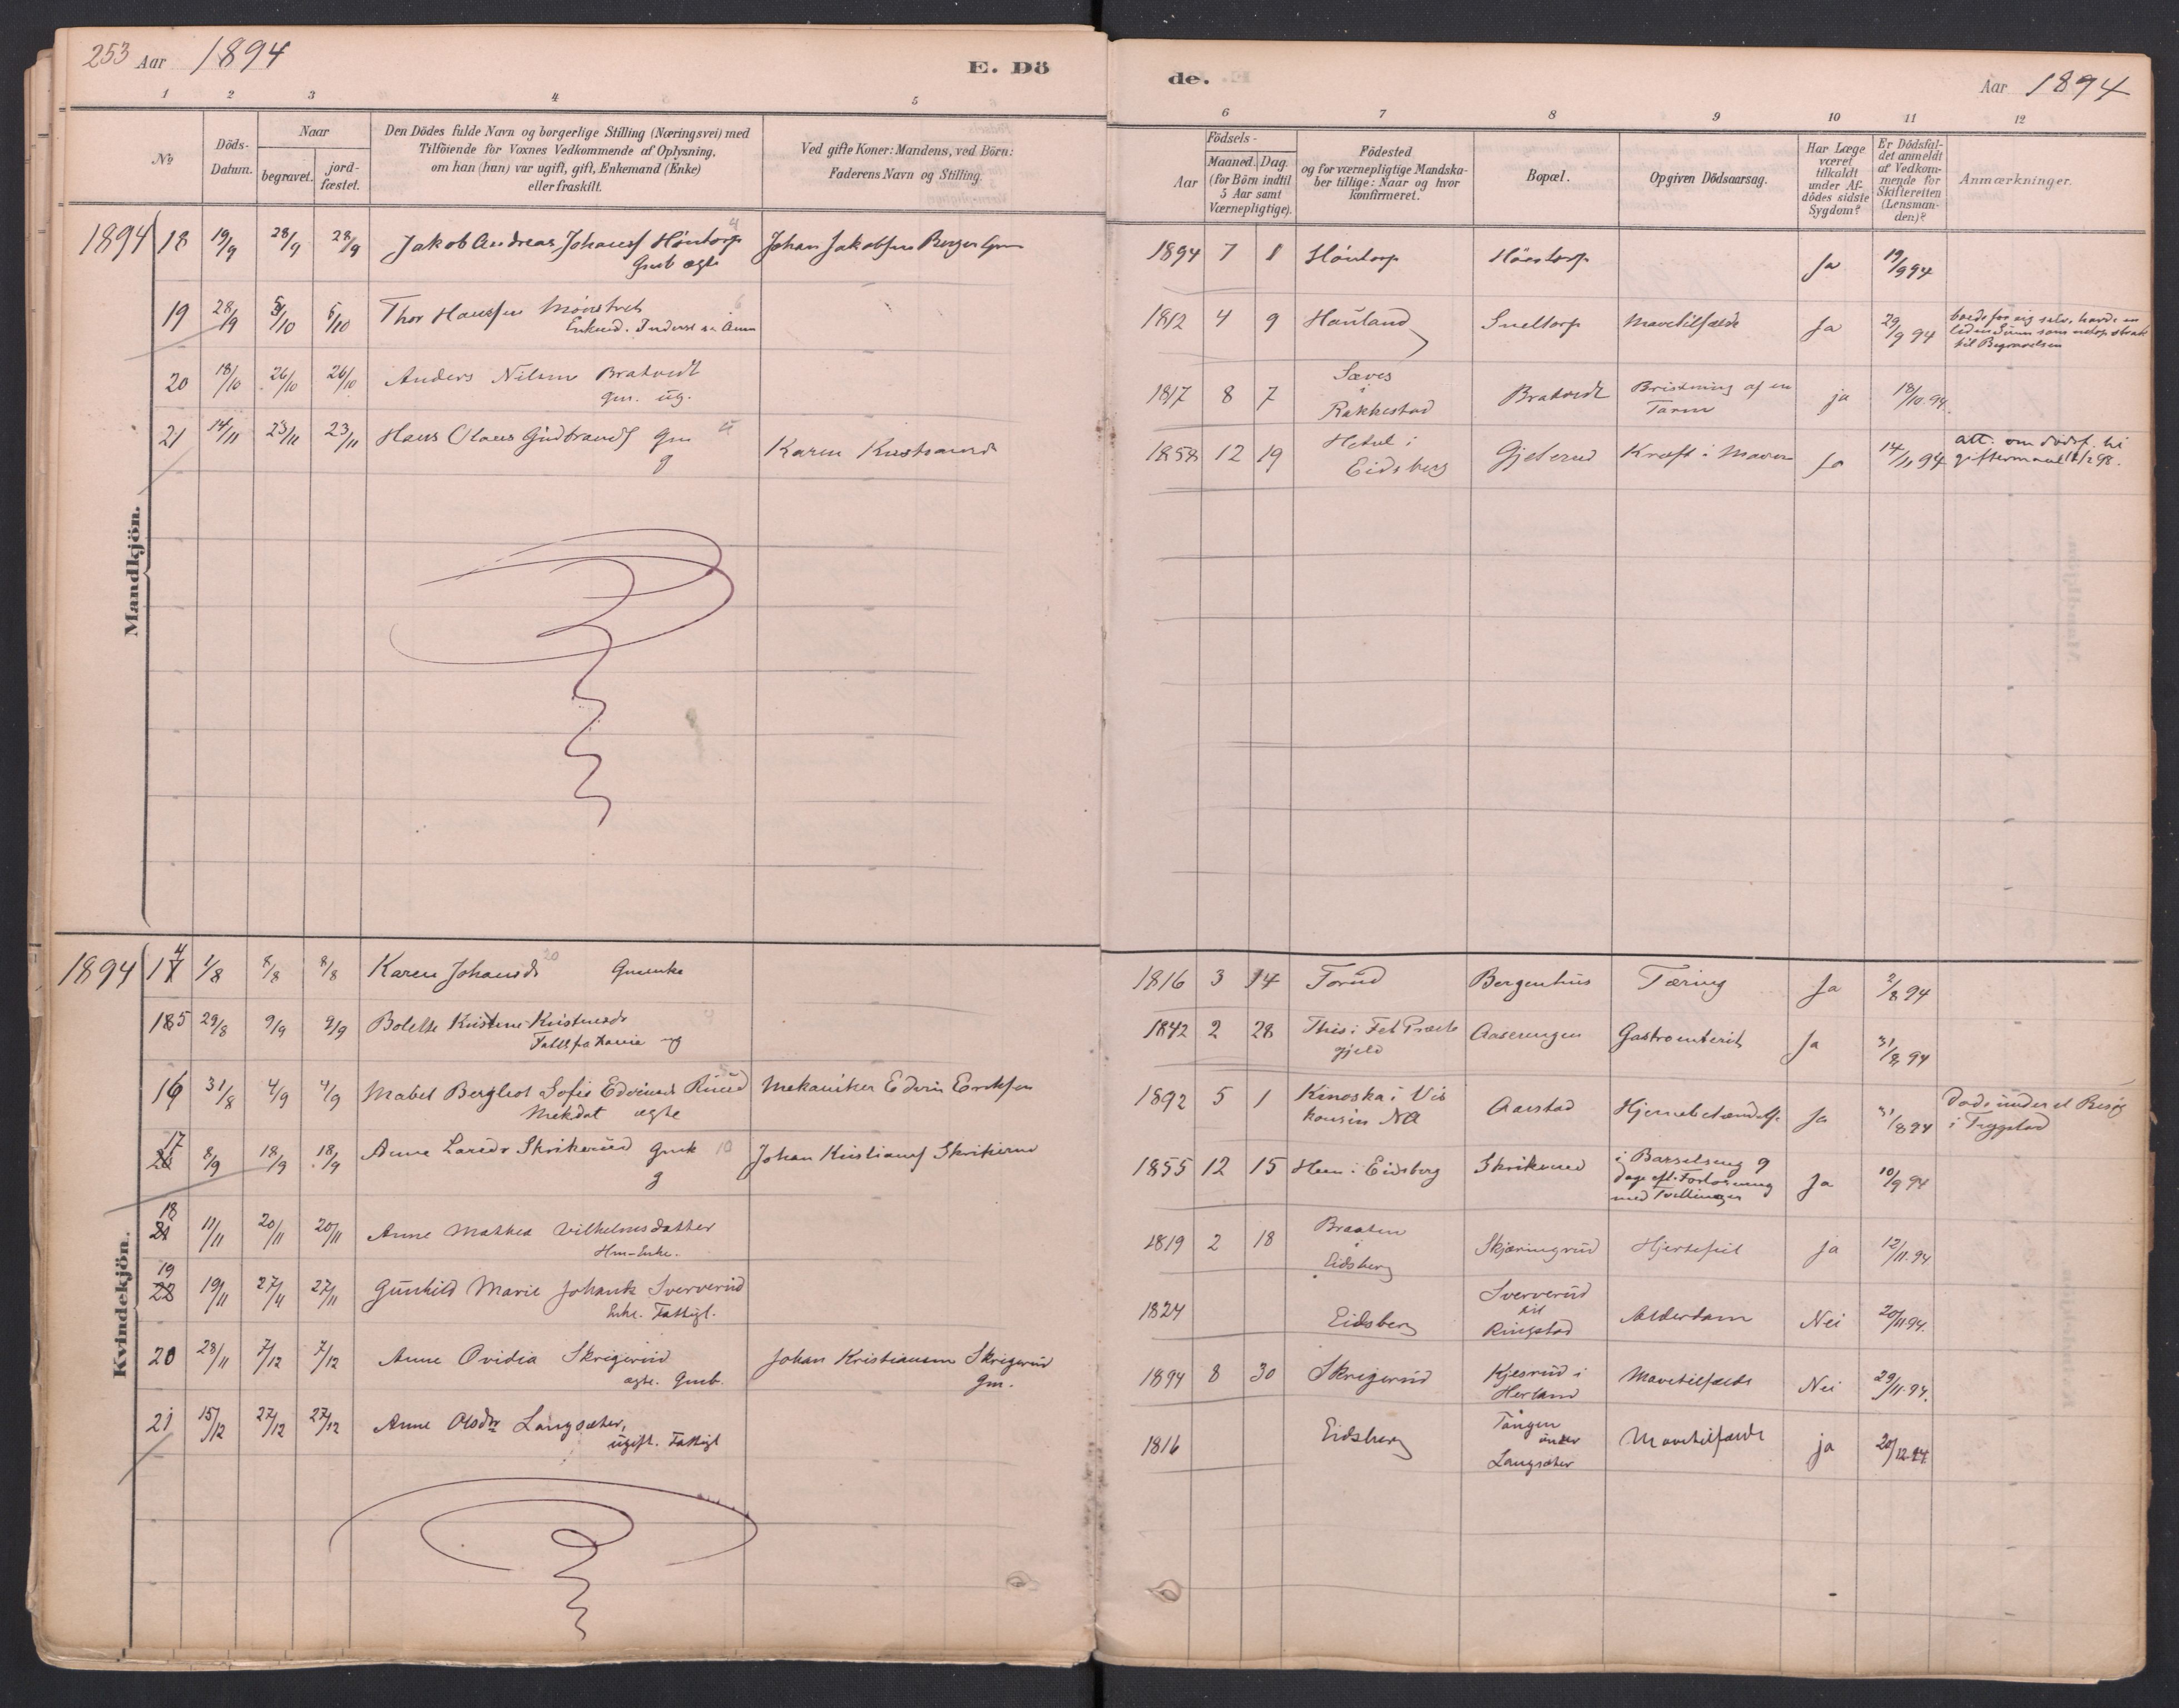 253 Aar 1894 E. Dö
de. Aar 1894
1 2 3 4 5 6 7 8 9 10 11 12
No
Döds-Datum.
Naar
begravet. jordfæstet.
Den Dödes fulde Navn og borgerlige Stilling (Næringsvei) med
Tilföiende for Voxnes Vedkommende af Oplysning,
om han (hun) var ugift, gift, Enkemand (Enke)
eller fraskilt.
Ved gifte Koner: Mandens, ved Börn:
Faderens Navn og Stilling.
Födsels-
Aar Maaned. Dag.
(for Börn indtil
5 Aar samt
Værnepligtige).
Födested
og for værnepligtige Mandska-
ber tillige: Naar og hvor
konfirmeret.
Bopæl.
Opgiven Dödsaarsag.
Har Læge
været
tilkaldt
under Af-
dödes sidste
Sygdom?
Er Dödsfal-
det anmeldt
af Vedkom-
mende for
Skifteretten
(Lensman-
den)?
Anmærkninger.
Mandkjön.
1894 18 19/9 28/9 28/9 Jakob Andreas Johansf Höntorp Johan Jakobsen Berger Gm 1894 7 8 Höntorp Höntorp Ja 19/9 94
Gmb ægte
19 28/9 5/10 5/10 Thor Hansen 1812 4 9 Hauland Sneltorp Mavetilfælde Ja 29/9 94 boede for sig selv, havde en
liden Sum som netop strak
til Begravelsen
20 18/10 26/10 26/10 Anders Nilsen Bratvedt 1817 8 7 Sæves i Rakkestad Bratvedt Bristning af en Tarm ja 18/10.94.
gm. ug.
21 14/11 23/11 23/11 Hans Olaus Gudbrandsf Gm Karen 1858 12 19 i Eidsberg Gjelerud Kræft i Maven Ja 14/11 94 att. om dødsf. til
g giftermaal
Kvindekjön.
1894 14 1/8 8/8 8/8 Karen Johansdr Gmenke 1816 3 14 Torud Bergenhus Tæring Ja 2/8 94
15 29/8 9/9 9/9 Bolette Kristine Kristensdr 1842 2 28 i Fet Præste Aaserengen Gastroenterit Ja 31/8 94
ug gjeld
16 31/8 4/9 4/9 Mabel Bergliot Sofie Edvinsd Ruud Mekaniker Edvin Eriksen 1892 5 1 Kinoska i Vis Aarstad Hjernebetændelse Ja 31/8 94 Døde under et Besøg
Mekdat ægte konsin NA i Trygstad
17 8/9 18/9 18/9 Anne Larsdr Skrikerud Gmk 10 Johan Kristiansf Skrikerud 1855 12 15 Hem i Eidsberg Skrikerud i Barselseng 9 Ja 10/9 94
g dage eft. Forløsning
med Tvillinger
18 11/11 20/11 20/11 Anne Mathea Vilhelmsdatter 1819 2 18 Braaten i Eidsberg Skjæringrud Hjertefeil ja 12/11.94
Hm-Enke.
19 19/11 27/11 27/11 Gunhild Marie Johansdr Sververud 1824 Eidsberg Sververud eie Ringstad Alderdom Nei 20/11.94.
Enke. Fattigl.
20 28/11 7/12 7/12 Anne Ovidia Skrigerud Johan Kristiansen Skrigerud 1894 8 30 Skrigerud Kjesrud i Herland Mavetilfælde Nei 29/11.94.
ægte. Gmb. Gm.
21 15/12 27/12 27/12 Anne Olsdtr Langsæter, 1816 Eidsberg Tangen under Langsæter Mavetilfælde ja 20/12.94
ugift. Fattigl